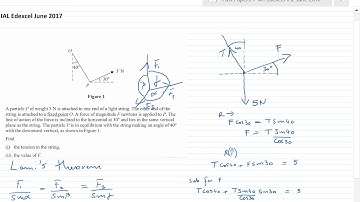 IAL Edexcel June 2017
O
40°
P
30°
F N
Figure 1
A particle P of weight 5 N is attached to one end of a light string. The other end of the
string is attached to a fixed point O. A force of magnitude F newtons is applied to P. The
line of action of the force is inclined to the horizontal at 30° and lies in the same vertical
plane as the string. The particle P is in equilibrium with the string making an angle of 40°
with the downward vertical, as shown in Figure 1.
Find
(i) the tension in the string,
(ii) the value of F.
Lami's theorem
F₁/sinα = F₂/sinβ = F₃/sinγ
F₁
F₂
F₃
α
β
γ
T
40
F
30°
5N
R →
F cos30 = T sin40
F = T sin40 / cos30
R(↑)
T cos40 + F sin30 = 5
Sub for F
T cos40 + T sin40 sin30 / cos30 = 5